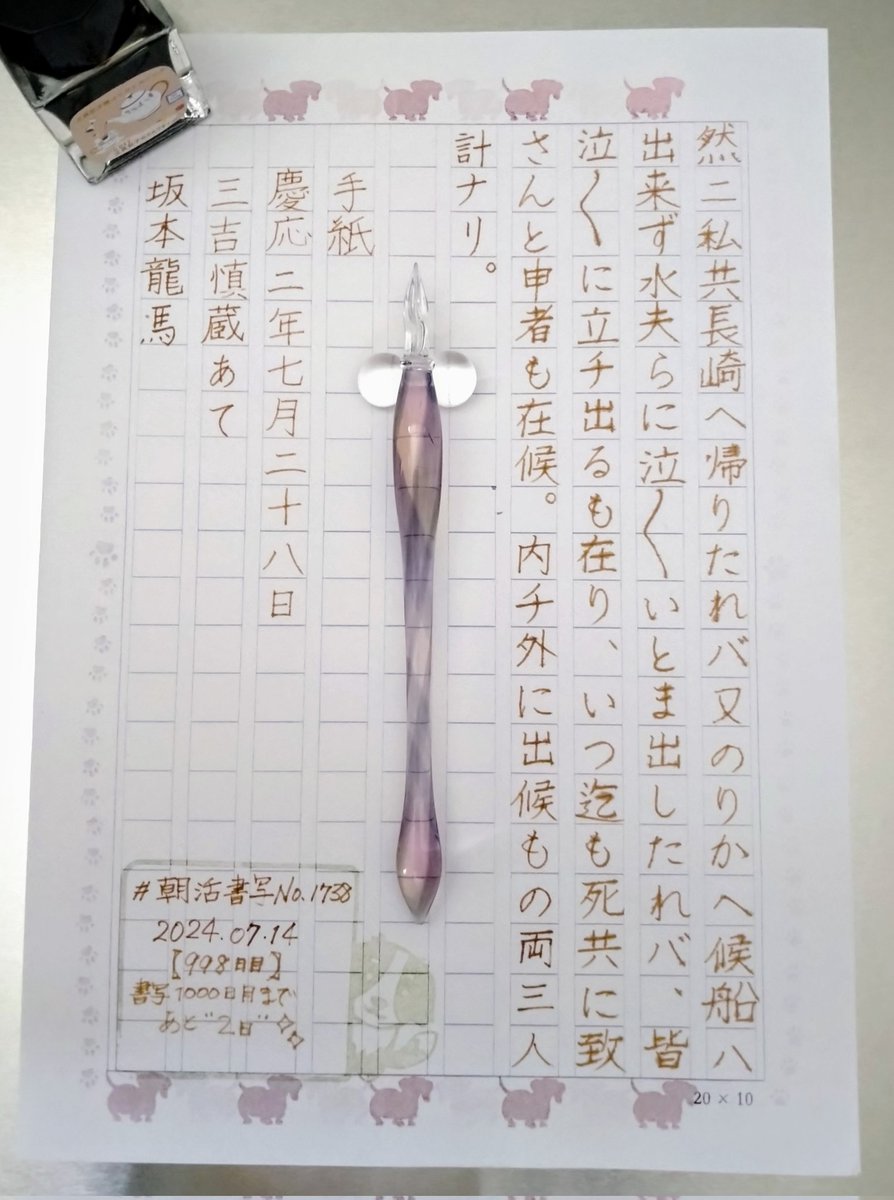 然ニ私共長崎へ帰りたれバ又のりかへ候船ハ
出来ず水夫らに泣〱いとま出したれバ、皆
泣〱に立チ出るも在り、いつ迄も死共に致
さんと申者も在候。内チ外に出候もの両三人
計ナリ。
手紙
慶応二年七月二十八日
三吉慎蔵あて
坂本龍馬
#朝活書写No.1738
2024.07.14
【998日目】
書写1000日目まで
あど"2日"
20×10